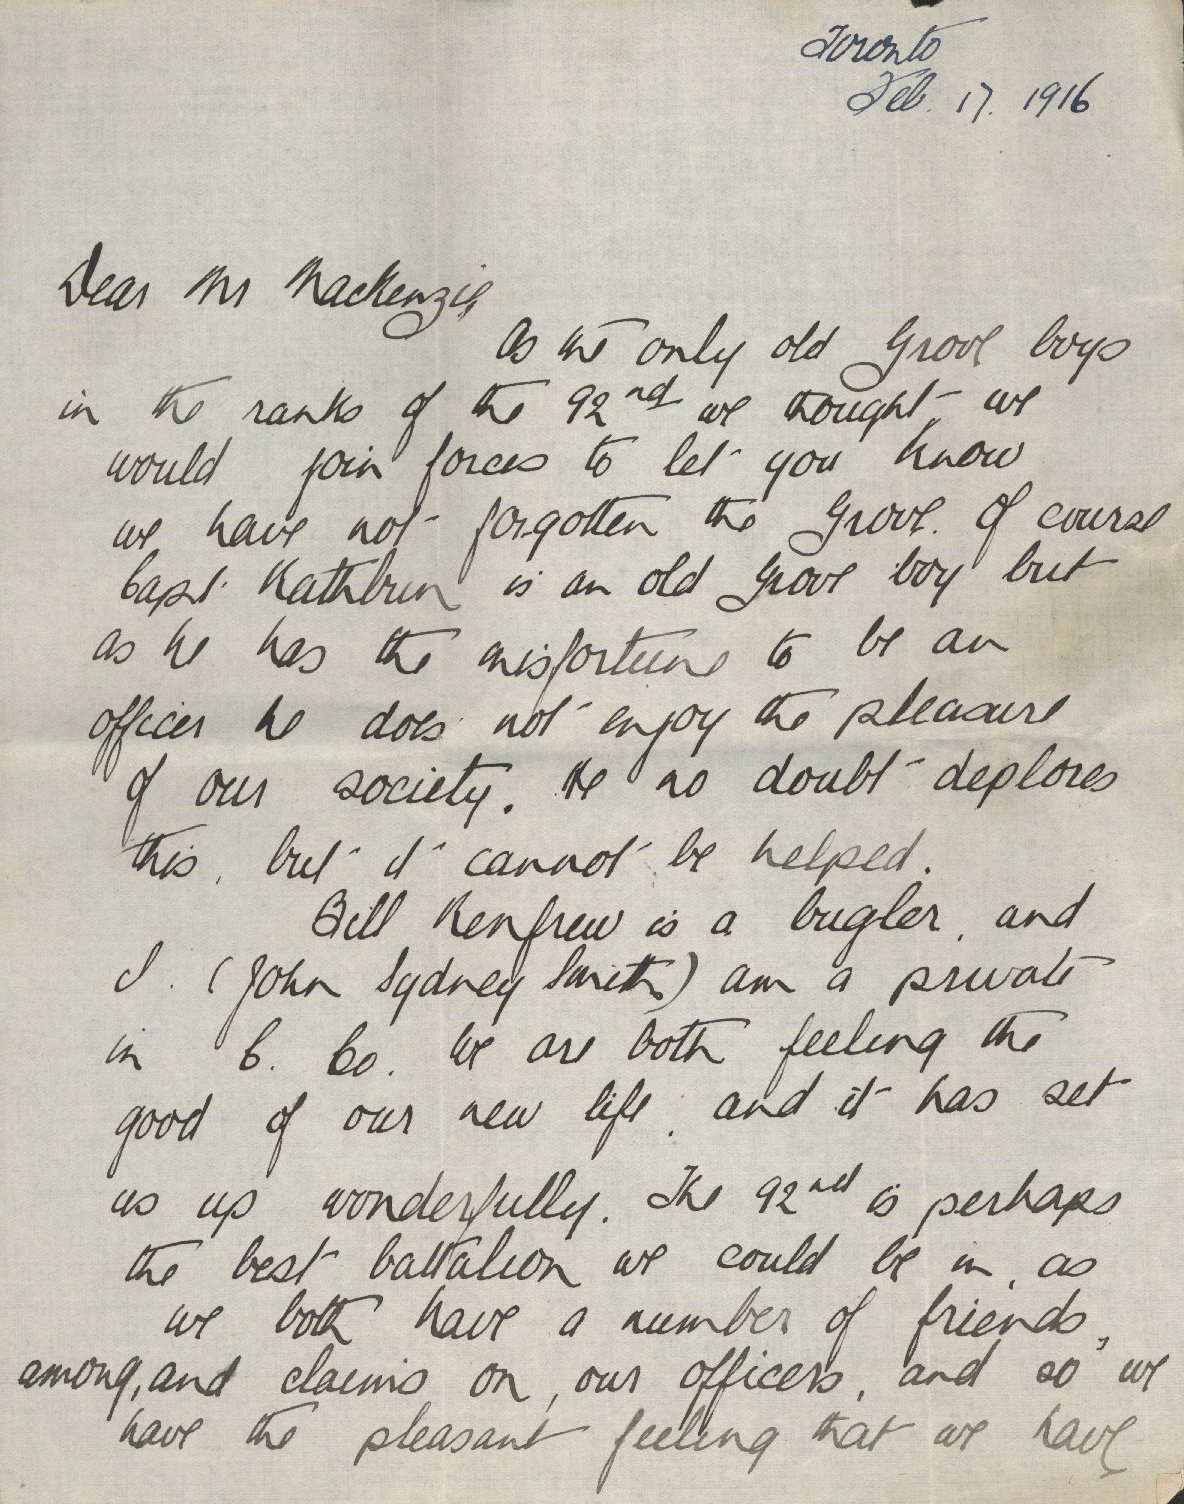 Toronto
Feb. 17. 1916
Dear Mr MacKenzie
As the only old Grove boys
in the ranks of the 92nd we thought we
would join forces to let you know
we have not forgotten the Grove. Of course
Capt. Rathbun is an old Grove boy but
as he has the misfortune to be an
officer he does not enjoy the pleasure
of our society. He no doubt deplores
this, but it cannot be helped.
Bill Renfrew is a bugler, and
I. (John Sydney Smith) am a private
in C. Co. We are both feeling the
good of our new life, and it has set
us up wonderfully. The 92nd is perhaps
the best battalion we could be in, as
we both have a number of friends,
among, and claims on, our officers, and so we
have the pleasant feeling that we have